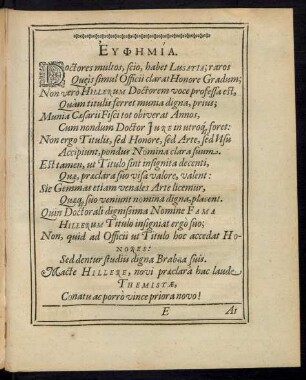 ΕΥΦΗΜΙΑ.
Doctores multos, scio, habet LUSATIS; raros
Queis simul Officii clarat Honore Gradum;
Non vero HILLERUM Doctorem voce professa est,
Quàm titulis ferret munia digna, prius;
Munia Cæsarii Fisci tot obiverat Annos,
Cum nondum Doctor JURE in utroq; foret:
Non ergo Titulis, sed Honore, sed Arte, sed Usu
Accipiunt, pondus Nomina clara suum.
Est tamen, ut Titulo sint insignita decenti,
Quæ, præclara suo visa valore, valent:
Sic Gemmas etiam venales Arte licemur,
Quæq, suo veniunt nomina digna, placent.
Quin Doctorali dignissima Nomine FAMA
HILLERUM Titulo insigniat ergò suo;
Non, quid ad Officii ut Titulo hoc accedat HO-
NORES:
Sed dentur studiis digna Brabea suis.
Macte HILLERE, novi præclarâ hac laude
THEMISTÆ,
Conatu ac porrò vince priora novo!
E At